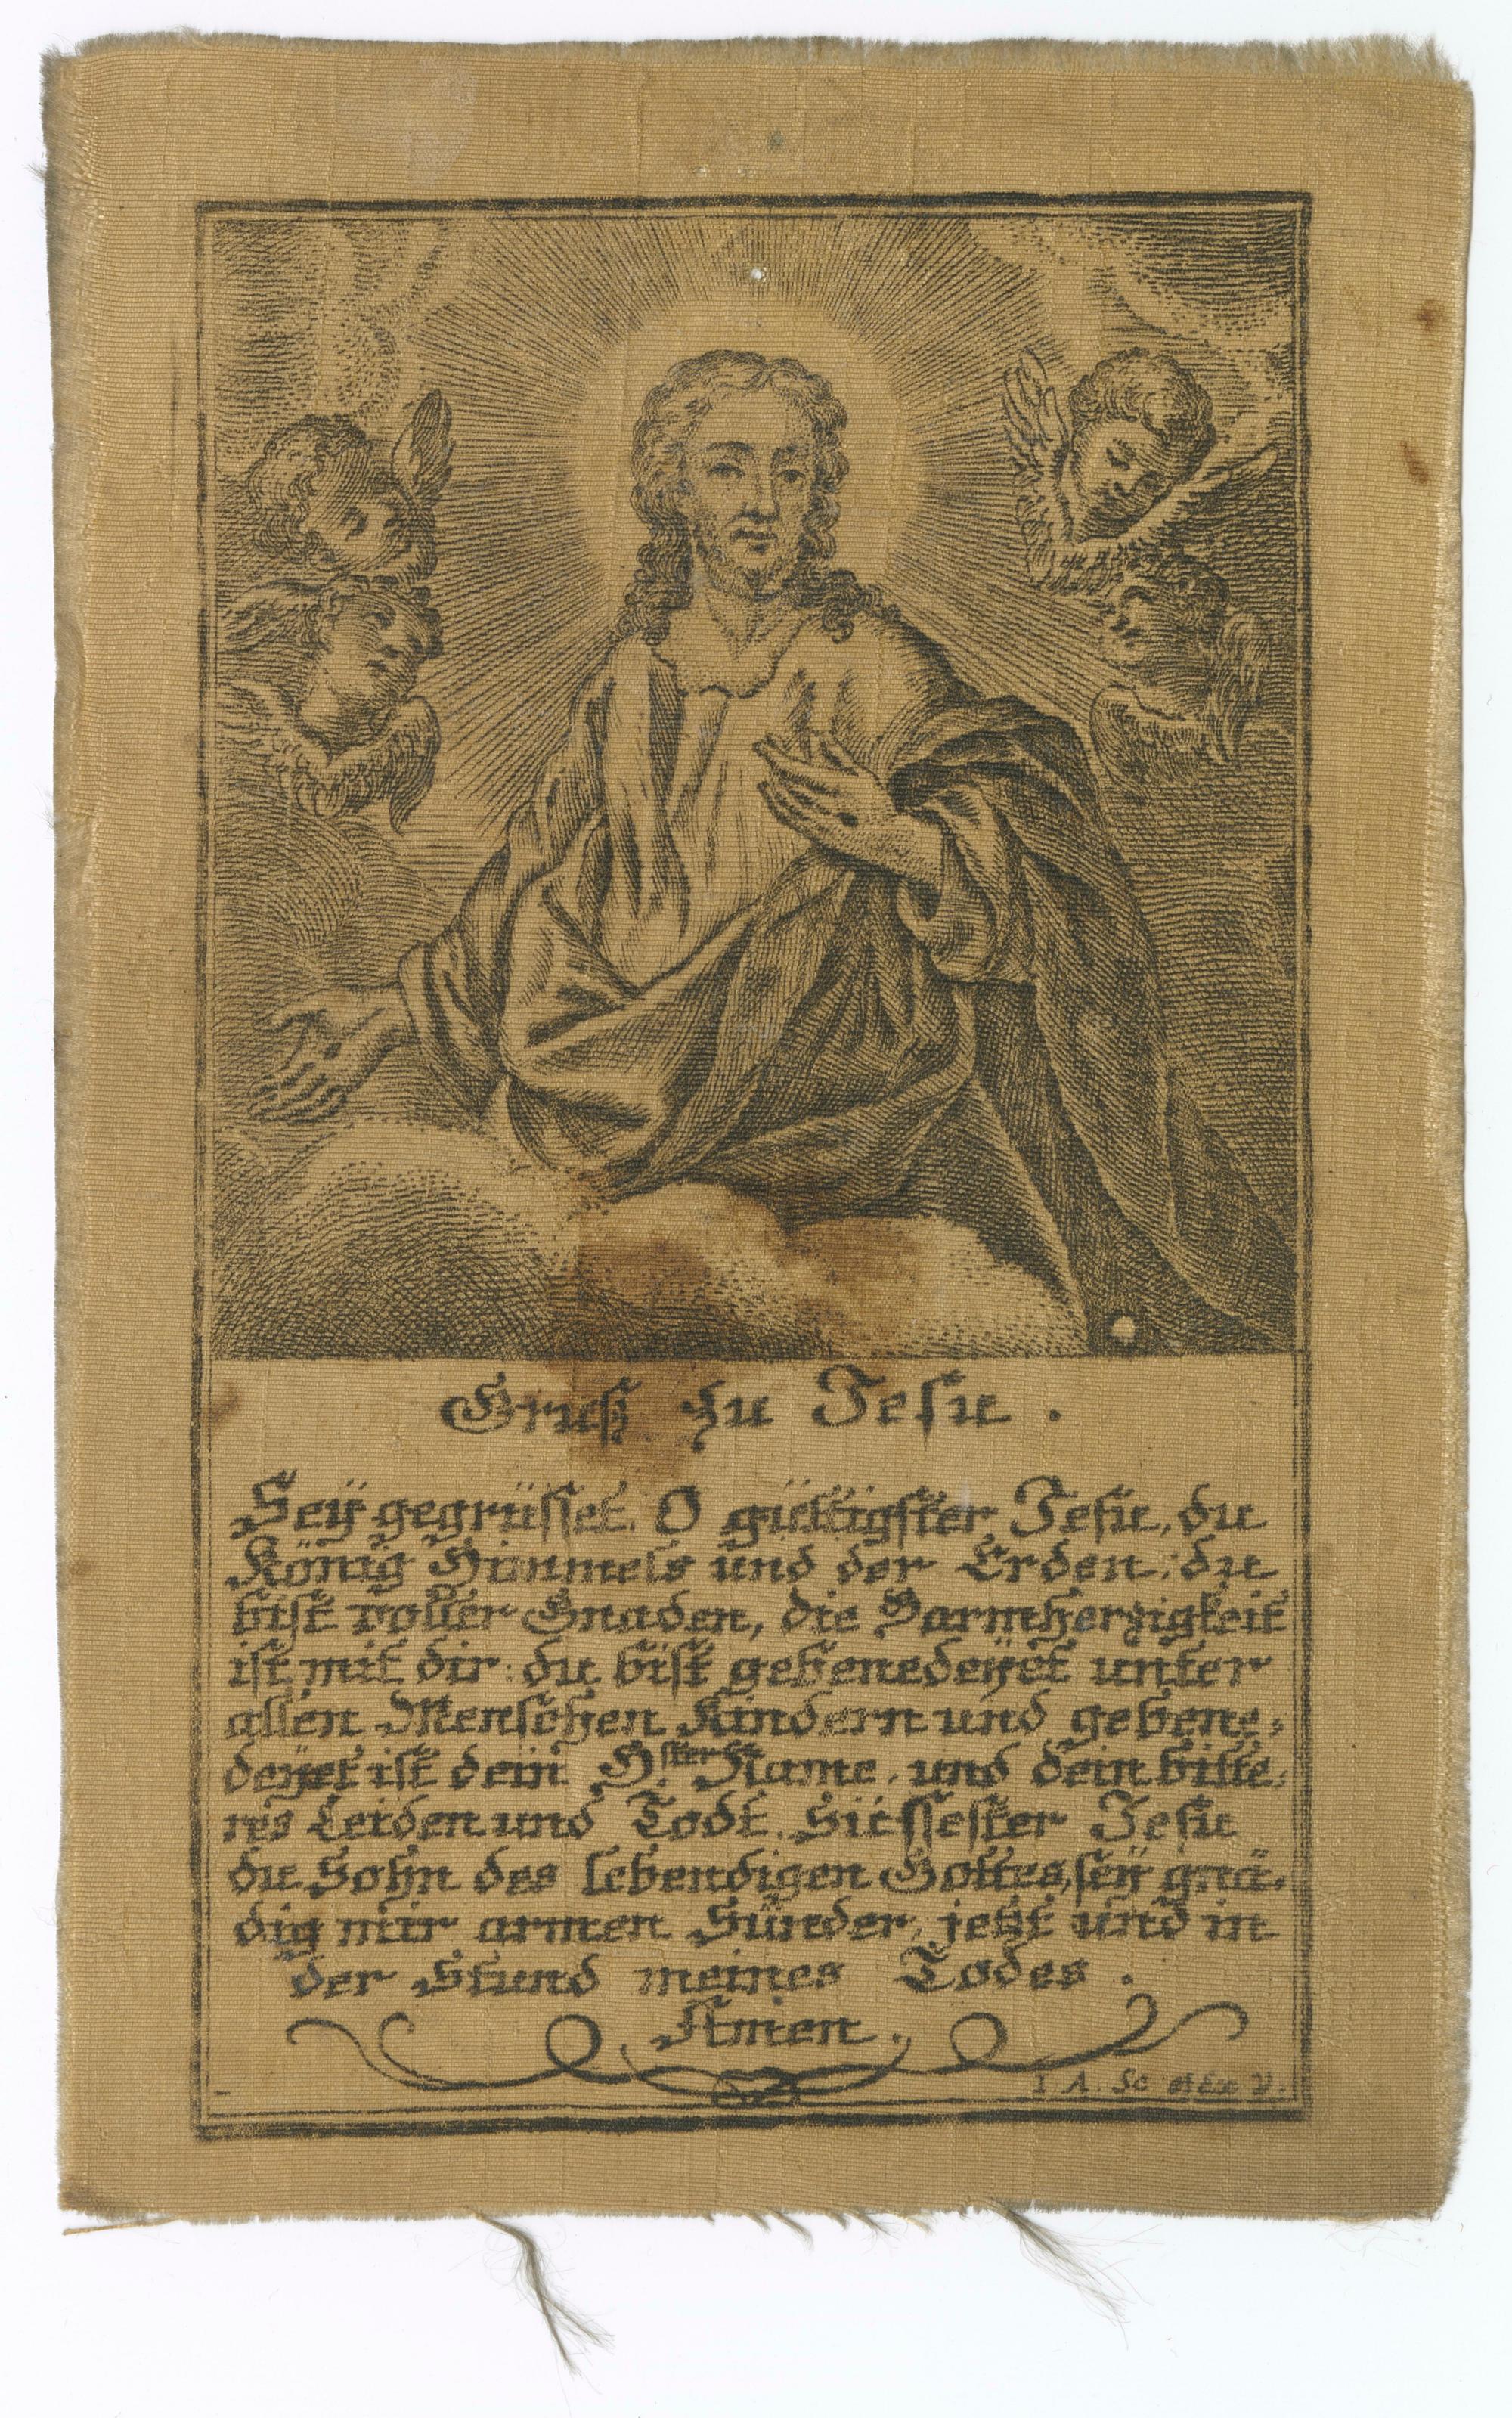 Gruß zu Jesu.
Seÿ gegrüsset. O güttigster Jesu, du
König Himmels und der Erden: du
bist voller Gnaden, die Barmherzigkeit
ist mit dir: du bist gebenedeÿet unter
allen Menschen Kindern und gebene-
deÿet ist dein H.ster Name, und dein bitte-
res Leiden und Todt. Süssester Jesu
du Sohn des lebendigen Gottes, seÿ gnä-
dig mir armen Sünder, jetzt und in
der Stund meines Todes.
Amen.
I. A. Sc et Ex V.